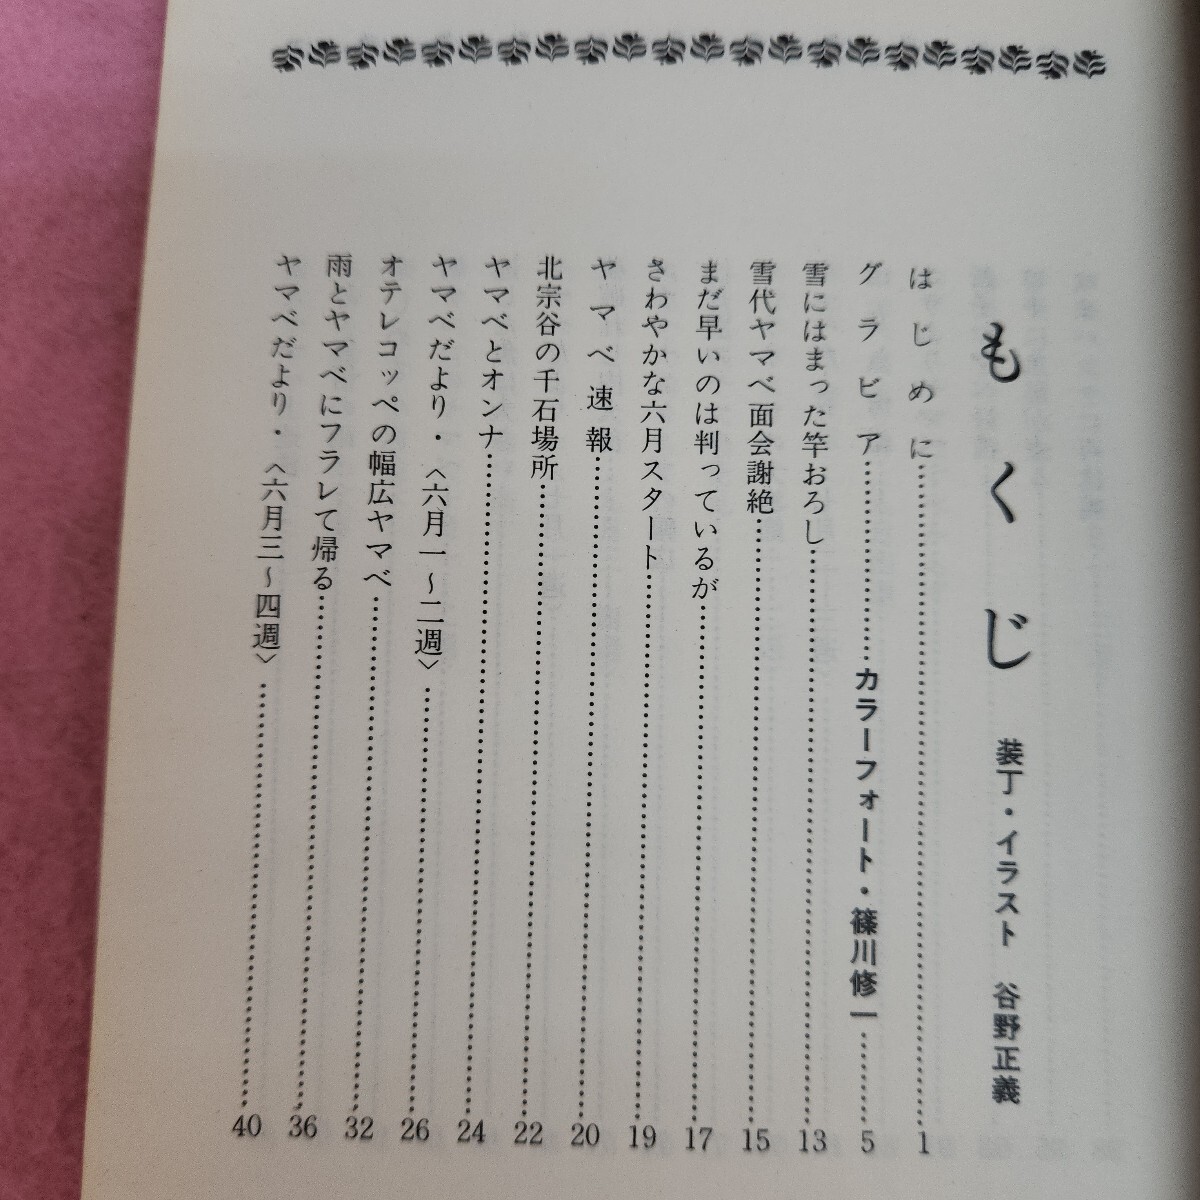 もくじ 装丁・イラスト 谷野正義
はじめに……1
グラビア……カラーフォート・篠川修一……5
雪にはまった竿おろし……13
雪代ヤマベ面会謝絶……15
まだ早いのは判っているが……17
さわやかな六月スタート……19
ヤマベ速報……20
北宗谷の千石場所……22
ヤマベとオンナ……24
ヤマベだより・〈六月一〜二週〉……26
オテレコッペの幅広ヤマベ……32
雨とヤマベにフラレて帰る……36
ヤマベだより・〈六月三〜四週〉……40